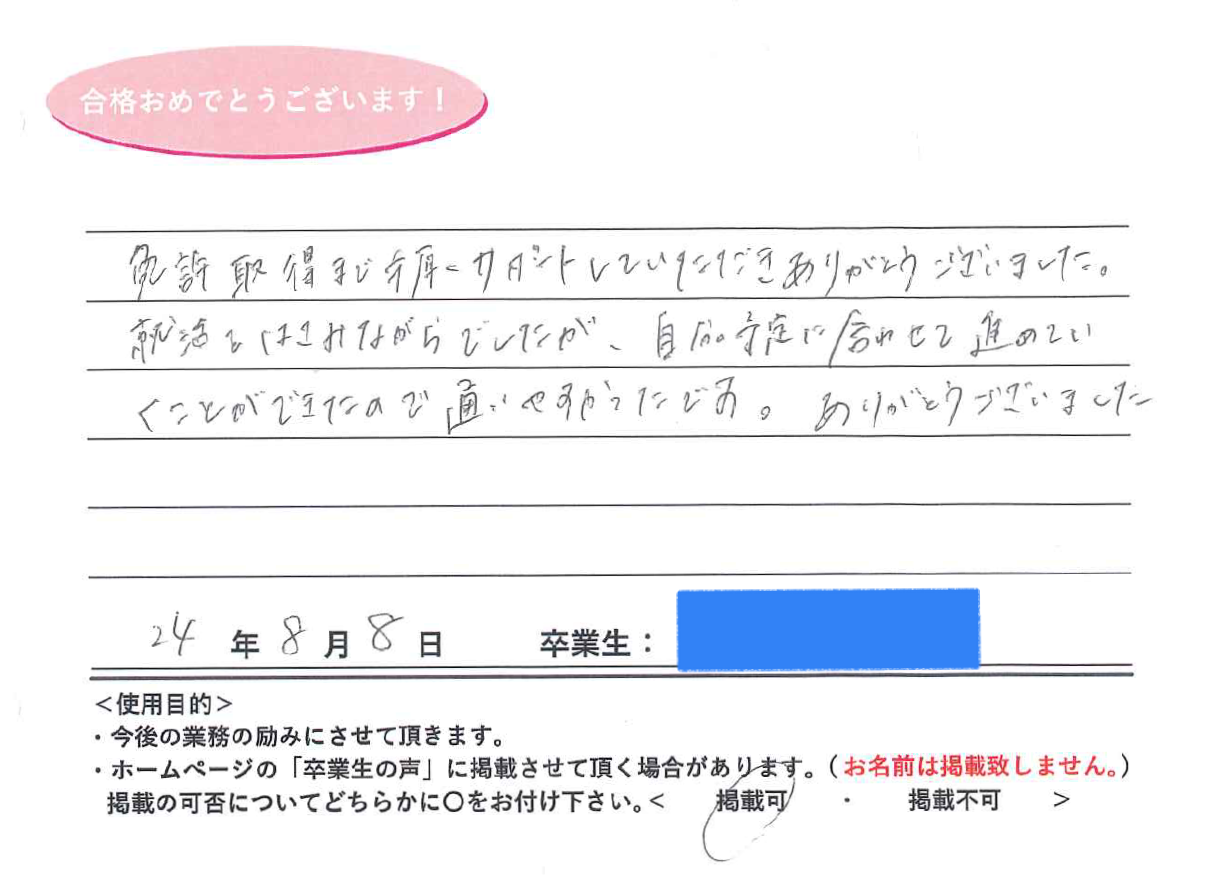 合格おめでとうございます！
免許取得まで手厚くサポートしていただきありがとうございました。
就活をはさみながらでしたが、自分の予定に合わせて進めてい
くことができたので通いやすかったです。ありがとうございました
24年8月8日 卒業生：
＜使用目的＞
・今後の業務の励みにさせて頂きます。
・ホームページの「卒業生の声」に掲載させて頂く場合があります。（お名前は掲載致しません。）
掲載の可否についてどちらかに〇をお付け下さい。＜ 掲載可 ・ 掲載不可 ＞